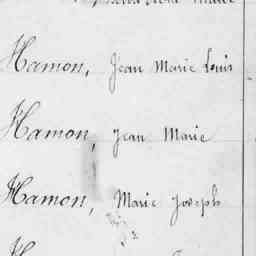 Marie
Hamon, Jean Marie Louis
Hamon, Jean Marie
Hamon, Marie Joseph